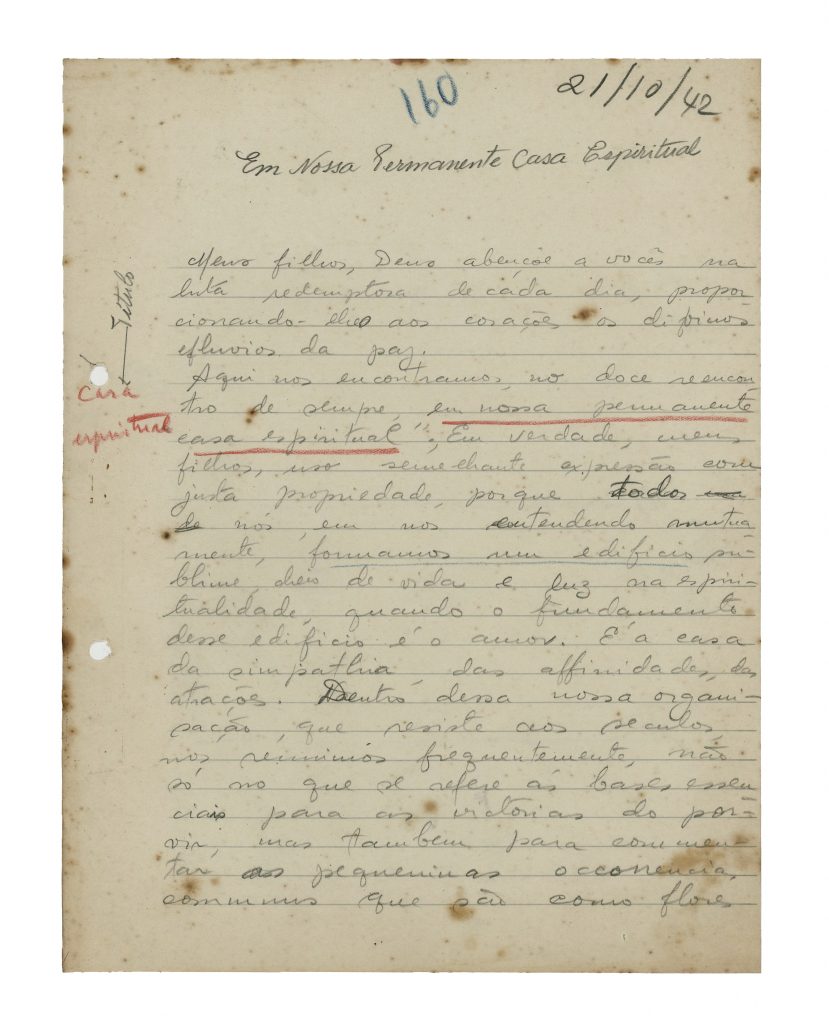 160
21/10/42
Em Nossa Permanente Casa Espiritual
Meus filhos, Deus abençõe a vocês na
luta redemptora de cada dia, propor
cionando-lhes aos corações os divinos
efluvios da paz.
Titulo
Aqui nos encontramos, no doce reencon-
tro de sempre, "em nossa permanente
Casa
espiritual
casa espiritual". Em verdade, meus
filhos, uso semelhante expressão com
justa propriedade, porque todos
nós, em nos entendendo mutua
mente, formamos um edificio su-
blime, cheio de vida e luz na espiri-
tualidade, quando o fundamento
desse edificio é o amor. E' a casa
da simpathia, das affinidades, das
atrações. Dentro dessa nossa organi-
sação, que resiste aos seculos,
nos reunimos frequentemente, não
só no que se refere ás bases essen
ciais para as victorias do por-
vir, mas tambem para commen-
tar as pequeninas occorrencias
communs que são como flores